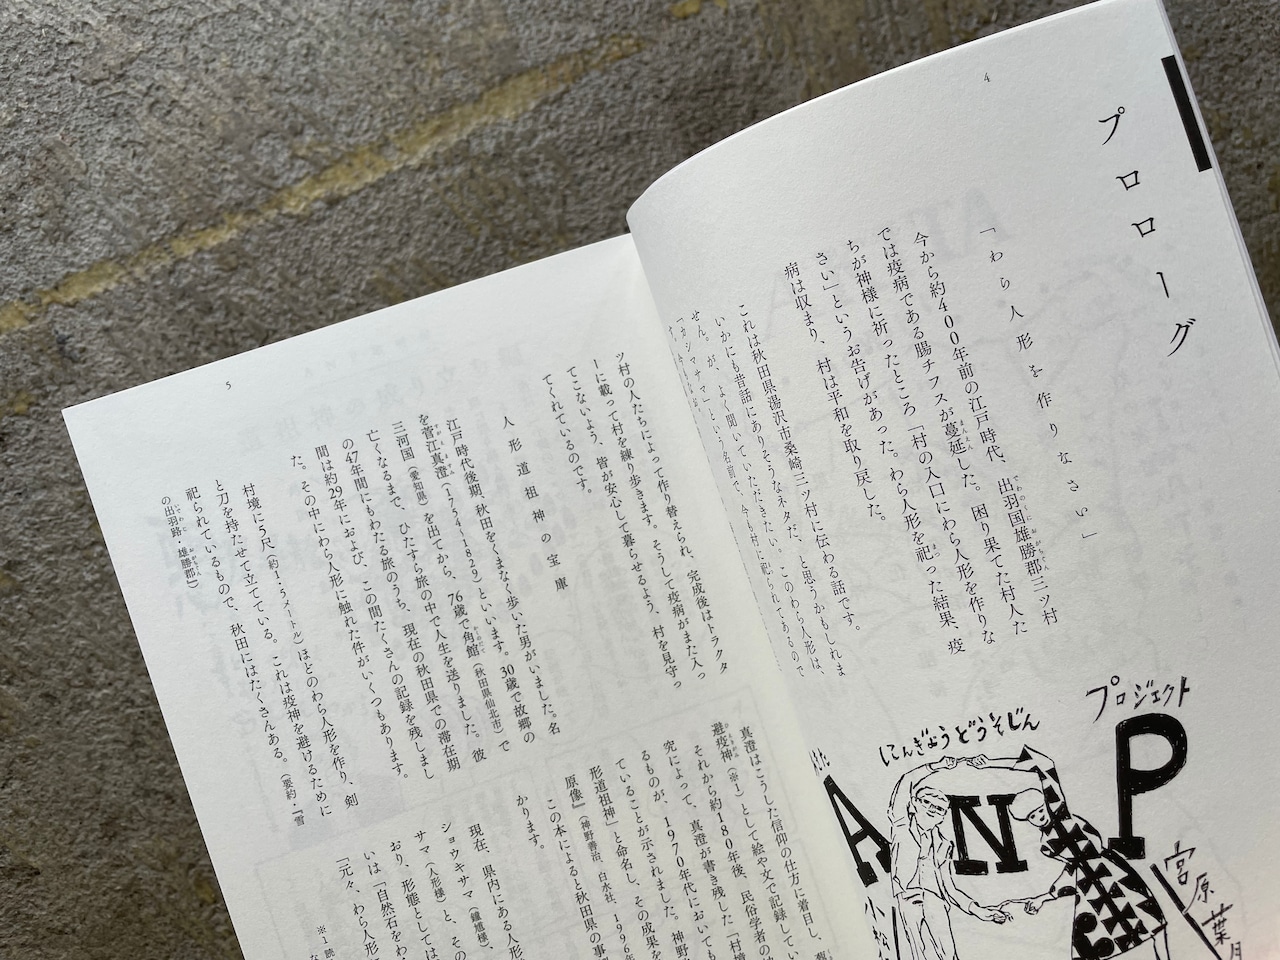 4
プロローグ
「わら人形を作りなさい」
今から約400年前の江戸時代、出羽国雄勝郡三ツ村
では疫病である腸チフスが蔓延した。困り果てた村人た
ちが神様に祈ったところ「村の入口にわら人形を作りな
さい」というお告げがあった。わら人形を祀った結果、疫
病は収まり、村は平和を取り戻した。
これは秋田県湯沢市桑崎三ツ村に伝わる話です。
いかにも昔話にありそうなネタだ、と思うかもしれま
せん。が、よく聞いていただきたい。このわら人形は、
「カシマサマ」という名前で、今も村に祀られてあるもので
プロジェクト
にんぎょうどうそじん
ANP
宮原葉月
5
ツ村の人たちによって作り替えられ、完成後はトラクタ
ーに載って村を練り歩きます。そうして疫病がまた入っ
てこないよう、皆が安心して暮らせるよう、村を見守っ
てくれているのです。
人形道祖神の宝庫
江戸時代後期、秋田をくまなく歩いた男がいました。名
を菅江真澄（1754-1829）といいます。30歳で故郷の
三河国（愛知県）を出てから、76歳で角館（秋田県仙北市）で
亡くなるまで、ひたすら旅の中で人生を送りました。彼
の47年間にもわたる旅のうち、現在の秋田県での滞在期
間は約29年におよび、この間たくさんの記録を残しまし
た。その中にわら人形に触れた件がいくつもあります。
村境に5尺（約1.5メートル）ほどのわら人形を作り、剣
と刀を持たせて立てている。これは疫神を避けるために
祀られているもので、秋田にはたくさんある。（要約・『雪
の出羽路・雄勝郡』）
真澄はこうした信仰の仕方に着目し、
避疫神（※1）として絵や文で記録してい
それから約180年後、民俗学者の
究によって、真澄が書き残した「村境
るものが、1970年代においても
ていることが示されました。神野
形道祖神」と命名し、その成果を
原像』（神野善治、白水社、1996年
この本によると秋田県の事
かります。
現在、県内にある人形
ショウキサマ（鍾馗様）、
サマ（人形様）と、その
おり、形態としては
いは「自然石をわ
「元々、わら人形
※1 読